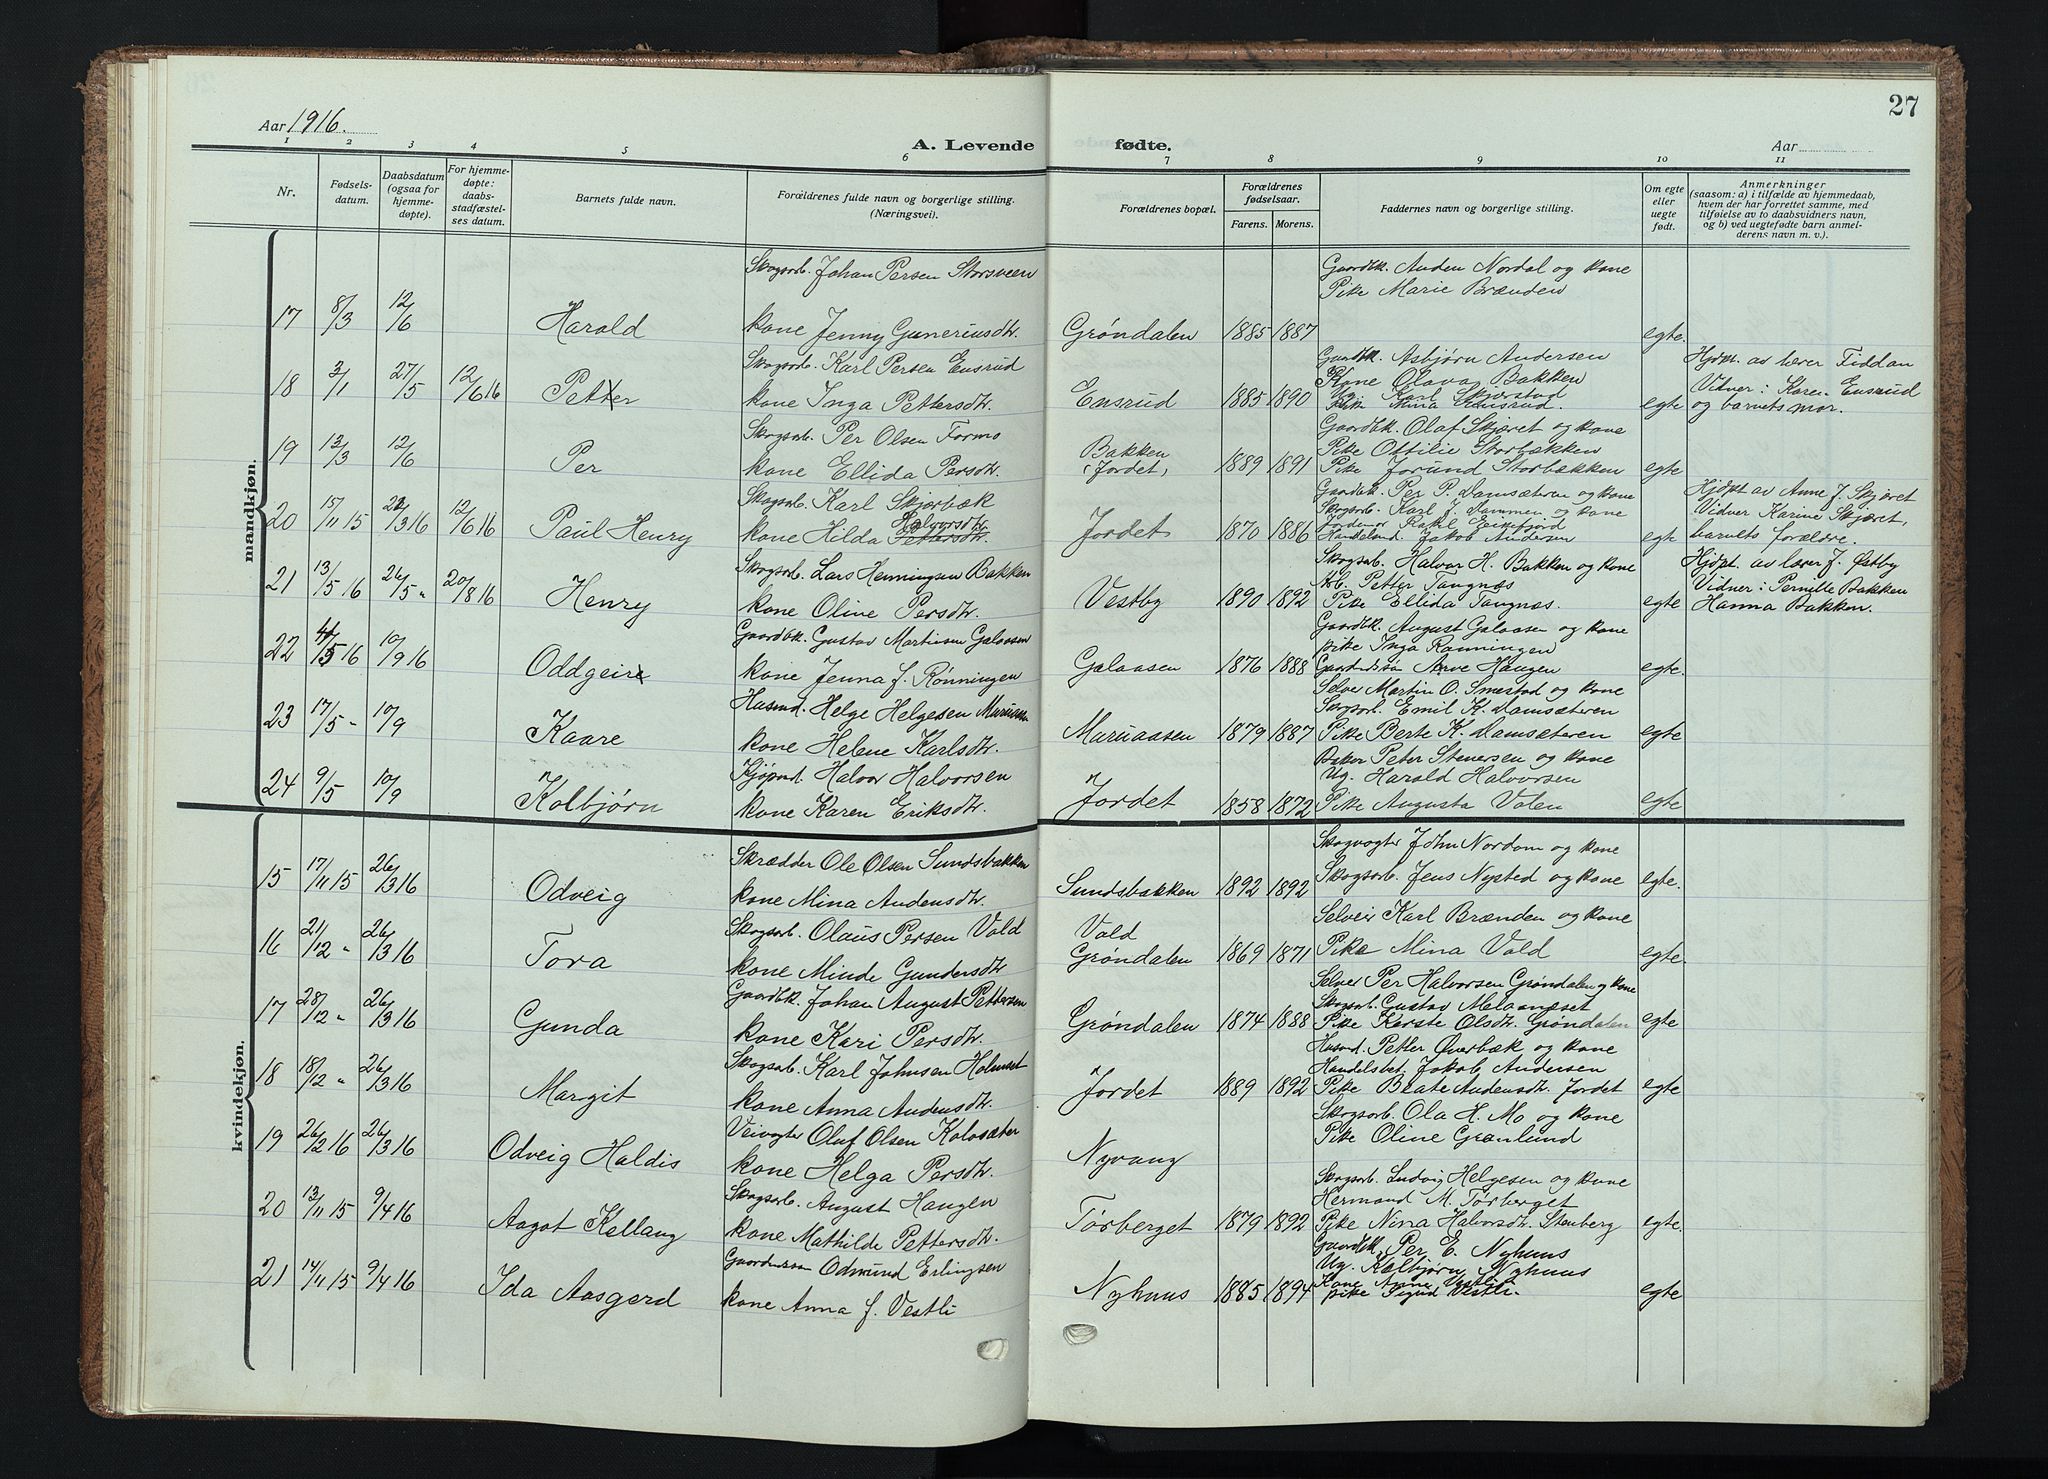 27
Aar 1916.
A. Levende fødte.
Aar
1 2 3 4 5 6 7 8 9 10 11
Nr.
Fødsels-
datum.
Daabsdatum
(ogsaa for
hjemme-
døpte).
For hjemme-
døpte:
daabs-
stadfæstel-
ses datum.
Barnets fulde navn.
Forældrenes fulde navn og borgerlige stilling.
(Næringsvei).
Forældrenes bopæl.
Forældrenes
fødselsaar.
Farens. Morens.
Faddernes navn og borgerlige stilling.
Om egte
eller
uegte
født.
Anmerkninger
(saasom: a) i tilfælde av hjemmedaab,
hvem der har forrettet samme, med
tilføielse av to daabsvidners navn,
og b) ved uegtefødte barn anmel-
derens navn m. v.).
mandkjøn.
Skogsarb. Johan Persen Storsveen
Gaardbk. Anden Nordal og kone
Pike Marie Brænden
17 8/3 12/6 Harald kone Jenny Guneriusdtr. Grøndalen 1885 1887 egte.
Skogsarb. Karl Persen Ensrud
Gaardbk. Asbjørn Andersen
Hjdpt. av lærer Fiddan
18 2/1 27/5 12/6 16 Petter kone Inga Pettersdtr. Ensrud 1885 1890 egte
Kone Olava Bakken
Ug. Karl Skjærstad
Pike Mina Ensrud.
Vidner: Karen Ensrud
og barnets mor.
Skogsarb. Per Olsen Formo
Gaardbk. Olaf Skjæret og kone
19 13/3 12/6 Per kone Ellida Persdtr. Bakken (Jordet) 1889 1891 egte
Pike Ottilie Storbækken
Pike Jorund Storbækken
Skogsarb. Karl Skjørbæk
Gaardbk. Per P. Damsæteren og kone
Hjdpt av Anne J. Skjøret
Halvorsdtr.
20 15/11 15 23/3 16 12/6 16 Paul Henry kone Hilda Pettersdtr. Jordet 1870 1886 egte
Skogsarb. Karl J. Dammen og kone
Jordmor Rakl Eikefjord
Handelsmd. Jakob Andersen
Vidner Karine Skjæret,
barnets forældre.
Skogsarb. Lars Henningsen Bakken
Skogsarb. Halvor H. Bakken og kone
Hjdpt. av lærer J. Østby
21 13/5 16 26/5 „ 20/8 16 Henry kone Oline Persdtr. Vestby 1890 1892 egte
Petter Tangnæs
Pike Ellida Tangnæs.
Vidner: Pernelle Bakken
Hanna Bakken.
Gaardbk. Gustav Martinsen Galaasen
Gaardbk. August Galaasen og kone
22 5 16 10/9 16 Oddgeir kone Jenna f. Rønningen Galaasen 1876 1888 egte.
pike Inga Rønningen
Gaardmdssøn Arve Haugen
Husmd. Helge Helgesen
Selver Martin O. Smestad og kone
23 17/5 „ 10/9 Kaare kone Helene Karlsdtr. Muruaasen 1879 1887 egte
Skogsarb. Emil K. Damsæteren
Pike Berte K. Damsæteren
Kjøpmd. Halvor Halvorsen
Baker Peter Stenersen og kone
24 9/5 10/9 Kolbjørn kone Karen Eriksdtr. Jordet 1858 1872 egte
Ug. Harald Halvorsen
Pike Augusta Volen
kvindekjøn.
Skrædder Ole Olsen Sundsbakken
Skogvogter John Nordom og kone
15 17/11 15 26/3 16 Odveig kone Mina Andensdtr. Sundsbakken 1892 1892 egte.
Skogsarb. Jens Nysted og kone
Skogsarb. Olaus Persen Vold
Vold
Selveier Karl Brænden og kone
16 21/12 „ 26/3 16 Tora kone Minde Gundersdtr Grøndalen 1869 1871 Pike Mina Vold egte.
Gaardbk. Johan August Pettersen
Selver Per Halvorsen Grøndalen og kone
17 28/12 „ 26/3 16 Gunda kone Kari Persdtr. Grøndalen 1874 1888 egte
Skogsarb. Gustav Melaanæset
Pike Kerste Olsdtr. Grøndalen
Skogsarb. Karl Johnsen Holmset
Husmd. Petter Øverbæk og kone
18 18/12 „ 26/3 16 Margit kone Anna Andensdtr. Jordet 1889 1892 egte
Handelsbet. Jakob Andersen
Pike Beate Andensdtr. Jordet
Veivogter Oluf Olsen Kolosæter
Skogsarb. Ola H. Mo og kone
19 26/2 16 26/3 16 Odveig Haldis kone Helga Persdtr. Nyvang
Pike Oline Grønlund
Skogsarb. August Haugen
Skogsarb. Ludvig Helgesen og kone
20 13/11 15 9/4 16 Aagot Kellaug kone Mathilde Pettersdtr. Tørberget 1879 1892 egte.
Hermand M. Tørberget
Pike Nina Halvorsdtr. Stenberg
Odmund Erlingsen
Gaardbk. Per E. Nyhuus
21 14/11 15 9/4 16 Ida Aasgerd kone Anna f. Vestli Nyhuus 1885 1894 egte
Ug. Kolbjørn Nyhuus
Kone Anne Vestli
pike Sigrid Vestli.